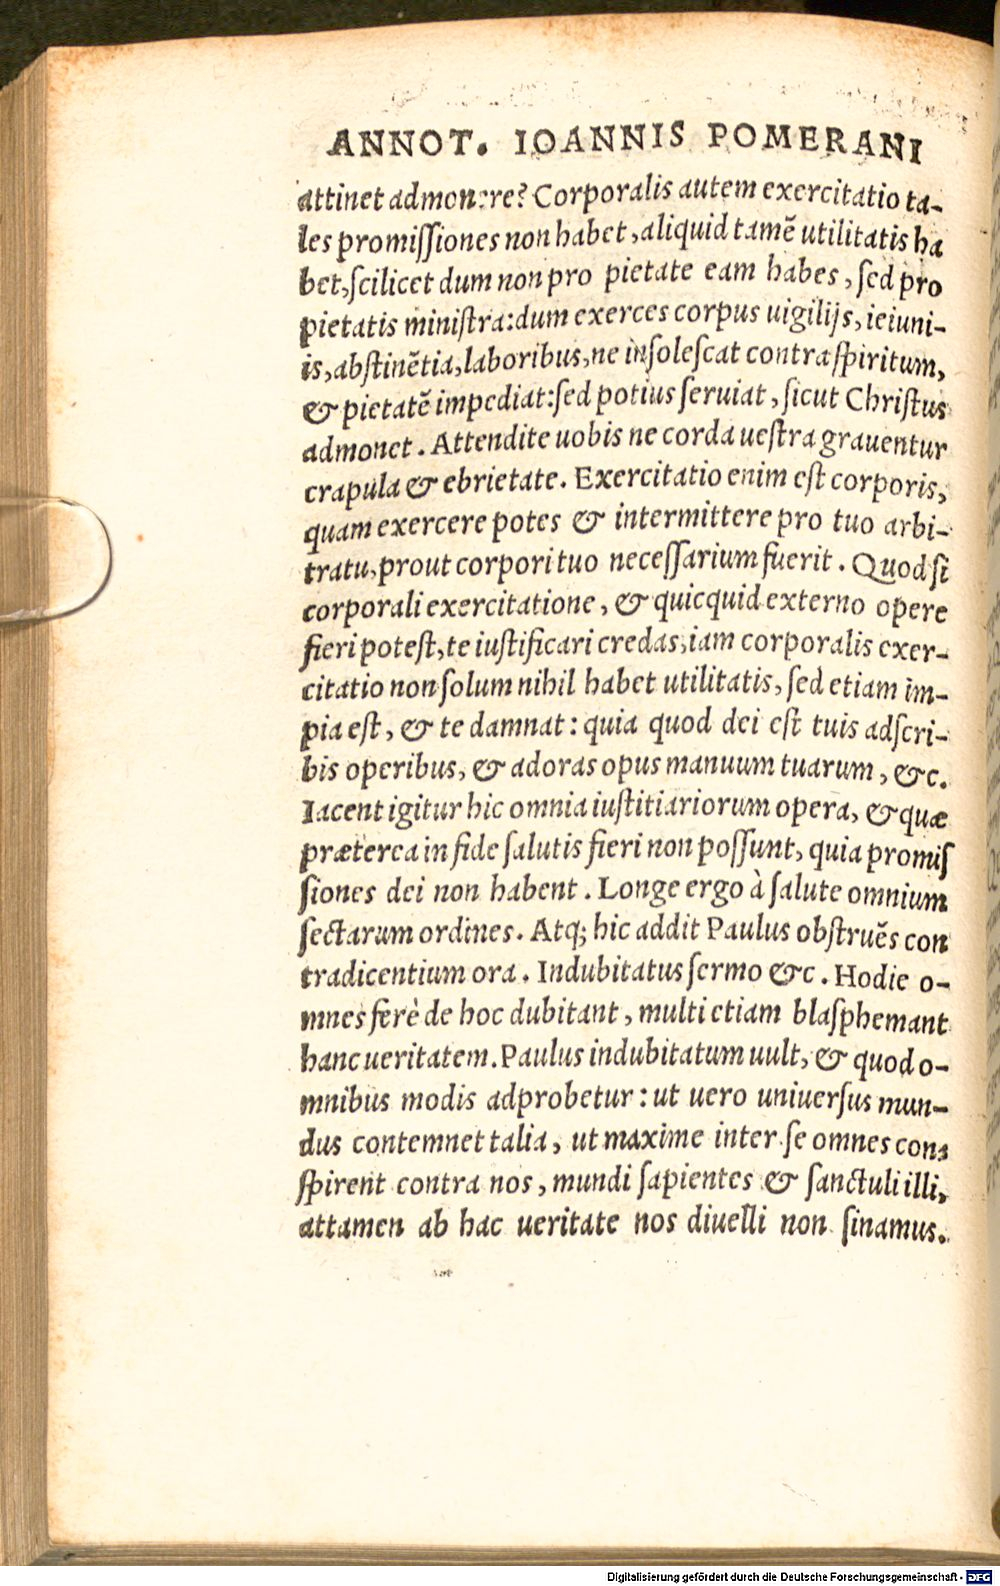 ANNOT. IOANNIS POMERANI
attinet admonere? Corporalis autem exercitatio ta-
les promiſſiones non habet, aliquid tamẽ utilitatis ha
bet, ſcilicet dum non pro pietate eam habes, ſed pro
pietatis miniſtra: dum exerces corpus uigilijs, ieiuni-
is, abſtinẽtia, laboribus, ne inſoleſcat contra ſpiritum,
& pietatẽ impediat: ſed potius ſeruiat, ſicut Chriſtus
admonet. Attendite uobis ne corda ueſtra grauentur
crapula & ebrietate. Exercitatio enim eſt corporis,
quam exercere potes & intermittere pro tuo arbi-
tratu, prout corpori tuo neceſſarium fuerit. Quod ſi
corporali exercitatione, & quicquid externo opere
fieri poteſt, te iuſtificari credas, iam corporalis exer-
citatio non ſolum nihil habet utilitatis, ſed etiam im-
pia eſt, & te damnat: quia quod dei eſt tuis adſcri-
bis operibus, & adoras opus manuum tuarum, &c.
Iacent igitur hic omnia iuſtitiariorum opera, & quæ
præterea in fide ſalutis fieri non poſſunt, quia promiſ
ſiones dei non habent. Longe ergo à ſalute omnium
ſectarum ordines. Atq; hic addit Paulus obſtruẽs con
tradicentium ora. Indubitatus ſermo &c. Hodie o-
mnes ferè de hoc dubitant, multi etiam blaſphemant
hanc ueritatem. Paulus indubitatum uult, & quod o-
mnibus modis adprobetur: ut uero uniuerſus mun-
dus contemnet talia, ut maxime inter ſe omnes con-
ſpirent contra nos, mundi ſapientes & ſanctuli illi,
attamen ab hac ueritate nos diuelli non ſinamus.
Digitalisierung gefördert durch die Deutsche Forschungsgemeinschaft - DFG